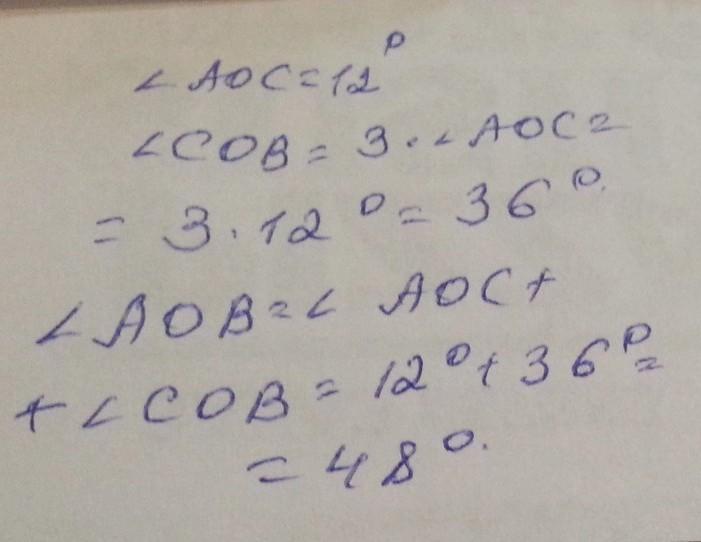 ∠AOC=12°
∠COB=3·∠AOC=
=3·12°=36°.
∠AOB=∠AOC+
+∠COB=12°+36°=
=48°.